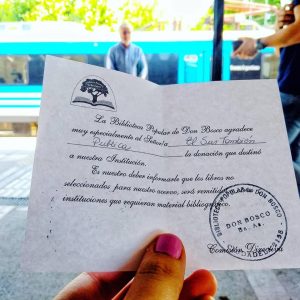 La Biblioteca Popular de Don Bosco agradece
muy especialmente al Señor/a El Sur También
Publica la donación que destinó
a nuestra Institución.
Es nuestro deber informarle que los libros no
seleccionados para nuestro acervo, serán remitidos
instituciones que requieran material bibliográfico.
Comisión Directiva
BIBLIOTECA POPULAR DE DON BOSCO
DON BOSCO
Bs. As.